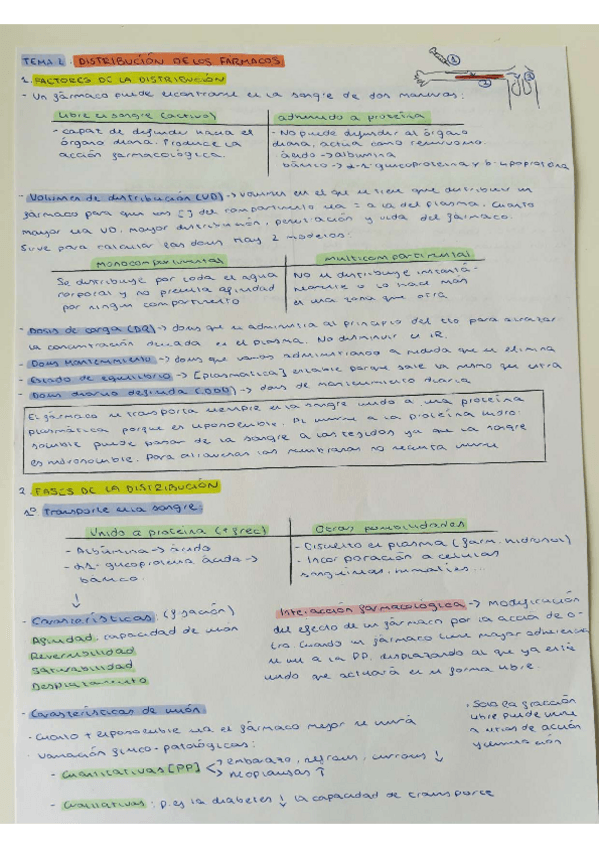 TEMA 2: DISTRIBUCIÓN DE LOS FÁRMACOS
1. FACTORES DE LA DISTRIBUCIÓN
- Un fármaco puede encontrarse en la sangre de dos maneras:
libre en sangre (activo)
- capaz de difundir hacia el
órgano diana. Produce la
acción farmacológica.
adherido a proteína
- No puede difundir al órgano
diana, actúa como reservorio.
ácido → albúmina
básico → α-1-glicoproteína y β-lipoproteína
- Volumen de distribución (VD) → volumen en el que se tiene que distribuir un
fármaco para que su [ ] del compartimento sea = a la del plasma. Cuanto
mayor sea VD, mayor distribución, penetración y vida del fármaco.
Sirve para calcular las dosis. Hay 2 modelos:
Monocompartimental
Se distribuye por toda el agua
corporal y no presenta afinidad
por ningún compartimento
Multicompartimental
No se distribuye instantá-
neamente o lo hace más
en una zona que otra
- Dosis de carga (DQ) → dosis que se administra al principio del tto para alcanzar
la concentración deseada en el plasma. No disminuir si IR.
- Dosis mantenimiento → dosis que vamos administrando a medida que se elimina
- Estado de equilibrio → [plasmática] estable porque sale lo mismo que entra
- Dosis diaria definida (DDD) → dosis de mantenimiento diaria
El fármaco se transporta siempre en la sangre unido a una proteína
plasmática porque es liposoluble. Al unirse a la proteína hidro-
soluble puede pasar de la sangre a los tejidos ya que la sangre
es hidrosoluble. Para atravesar las membranas no necesita unirse
2. FASES DE LA DISTRIBUCIÓN
1º Transporte en la sangre
Unido a proteína (+ frec)
- Albúmina → ácido
- α1-glicoproteína ácida →
básico.
Otras posibilidades
- Disuelto en plasma (farm. hidrosol)
- Incorporación a células
sanguíneas, inmaties...
↓
- Características: (fijación)
Afinidad, capacidad de unión
Reversibilidad
Saturabilidad
Desplazamiento
Interacción farmacológica → modificación
del efecto de un fármaco por la acción de o-
tro. Cuando un fármaco tiene mayor adherencia
se une a la PP, desplazando al que ya esté
unido que actuará en su forma libre.
- Características de unión
- Cuanto + liposoluble sea el fármaco mejor se unirá
· Variación fisio-patológicas:
- Cuantitativas [PP] < embarazo, nefrosis, cirrosis ↓
neoplasias ↑
- Cualitativas: p.ej. la diabetes ↓ la capacidad de transporte
· Solo la fracción
libre puede unirse
a sitios de acción
y eliminación
1
2
3